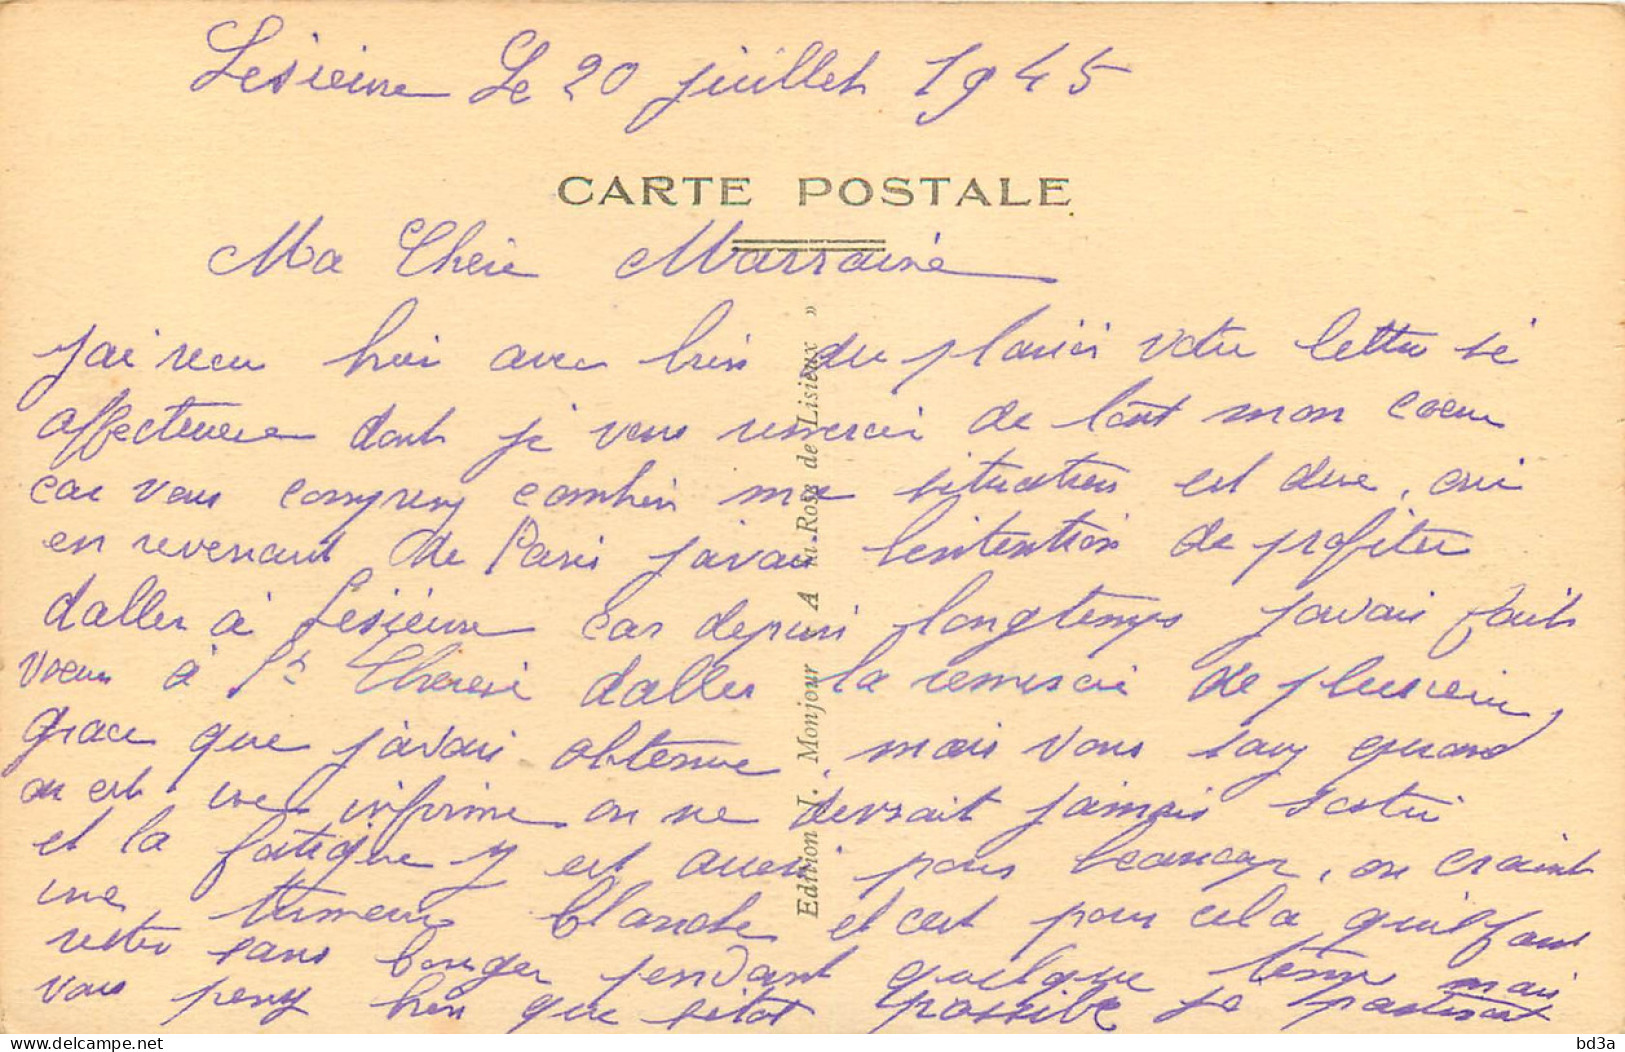 Lesieure Le 20 juillet 1945
CARTE POSTALE
Ma Chère Marraine
J'ai recu hier avec bien du plaisir votre lettre si
affectueuse dont je vous remercie de tout mon coeur
car vous comprenez combien ma situation est dure, oui
en revenant de Paris javais lentention de profiter
daller à Lesieure car depuis longtemps javais fait
voeux à Ste Therese daller la remercie de plusieur
grace que javais obtenue, mais vous savez quand
on est une infirme on ne devrait jamais sortir
et la fatigue y est aussi pour beaucoup, on craint
une tumeur blanche et cest pour cela quil faut
rester sans bouger pendant quelque temps mais
vous pensez bien que sitot possible je
Edition J. Monjour A la Rose de Lisieux »
bd3a
www.delcampe.net